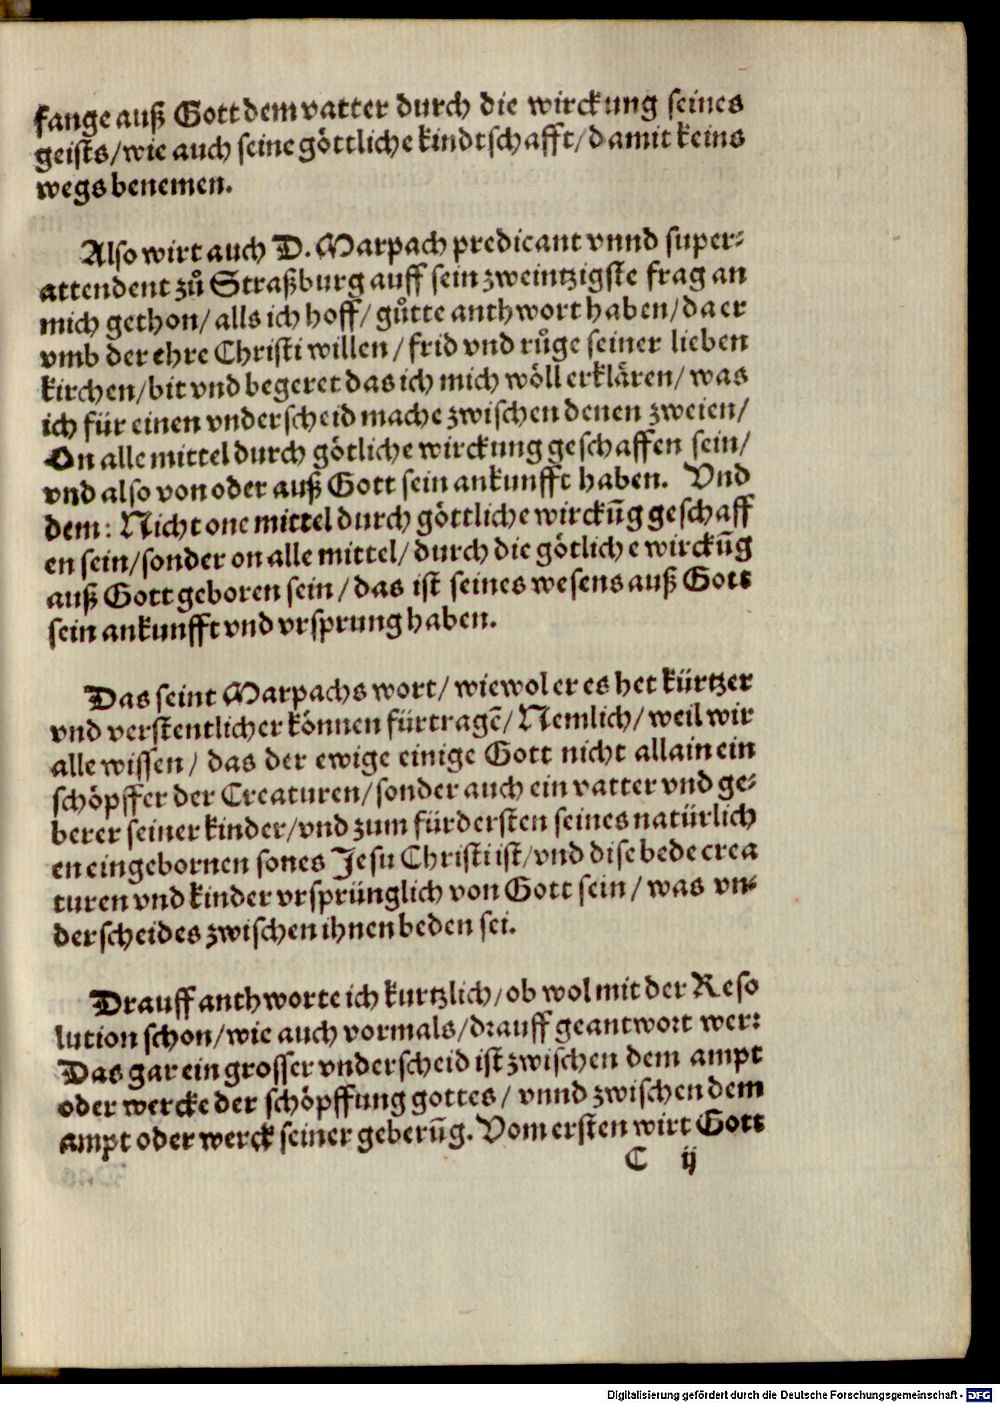 fange auß Gott dem vatter durch die wirckung seines
geists/ wie auch seine göttliche kindtschafft/ damit keins
wegs benemen.
Also wirt auch D. Marpach predicant vnnd super-
attendent zů Straßburg auff sein zweintzigste frag an
mich gethon/ alls ich hoff/ gůtte anthwort haben/ da er
vmb der ehre Christi willen/ frid vnd růge seiner lieben
kirchen/ bit vnd begeret das ich mich wöll erklären/ was
ich für einen vnderscheid mache zwischen denen zweien/
On alle mittel durch götliche wirckung geschaffen sein/
vnd also von oder auß Gott sein ankunfft haben. Vnd
dem: Nicht one mittel durch göttliche wirckūg geschaff
en sein/ sonder on alle mittel/ durch die götliche wirckūg
auß Gott geboren sein/ das ist seines wesens auß Gott
sein ankunfft vnd vrsprung haben.
Das seint Marpachs wort/ wiewol er es het kürtzer
vnd verstentlicher können fürtragē/ Nemlich/ weil wir
alle wissen/ das der ewige einige Gott nicht allain ein
schöpffer der Creaturen/ sonder auch ein vatter vnd ge-
berer seiner kinder/ vnd zum fürdersten seines natürlich
en eingebornen sones Jesu Christi ist/ vnd dise bede crea
turen vnd kinder vrsprünglich von Gott sein/ was vn-
derscheides zwischen ihnen beden sei.
Drauff anthworte ich kurtzlich/ ob wol mit der Reso
lution schon/ wie auch vormals/ drauff geantwort wer:
Das gar ein grosser vnderscheid ist zwischen dem ampt
oder wercke der schöpffung gottes/ vnnd zwischen dem
ampt oder werck seiner geberūg. Vom ersten wirt Gott
C ij
Digitalisierung gefördert durch die Deutsche Forschungsgemeinschaft - DFG